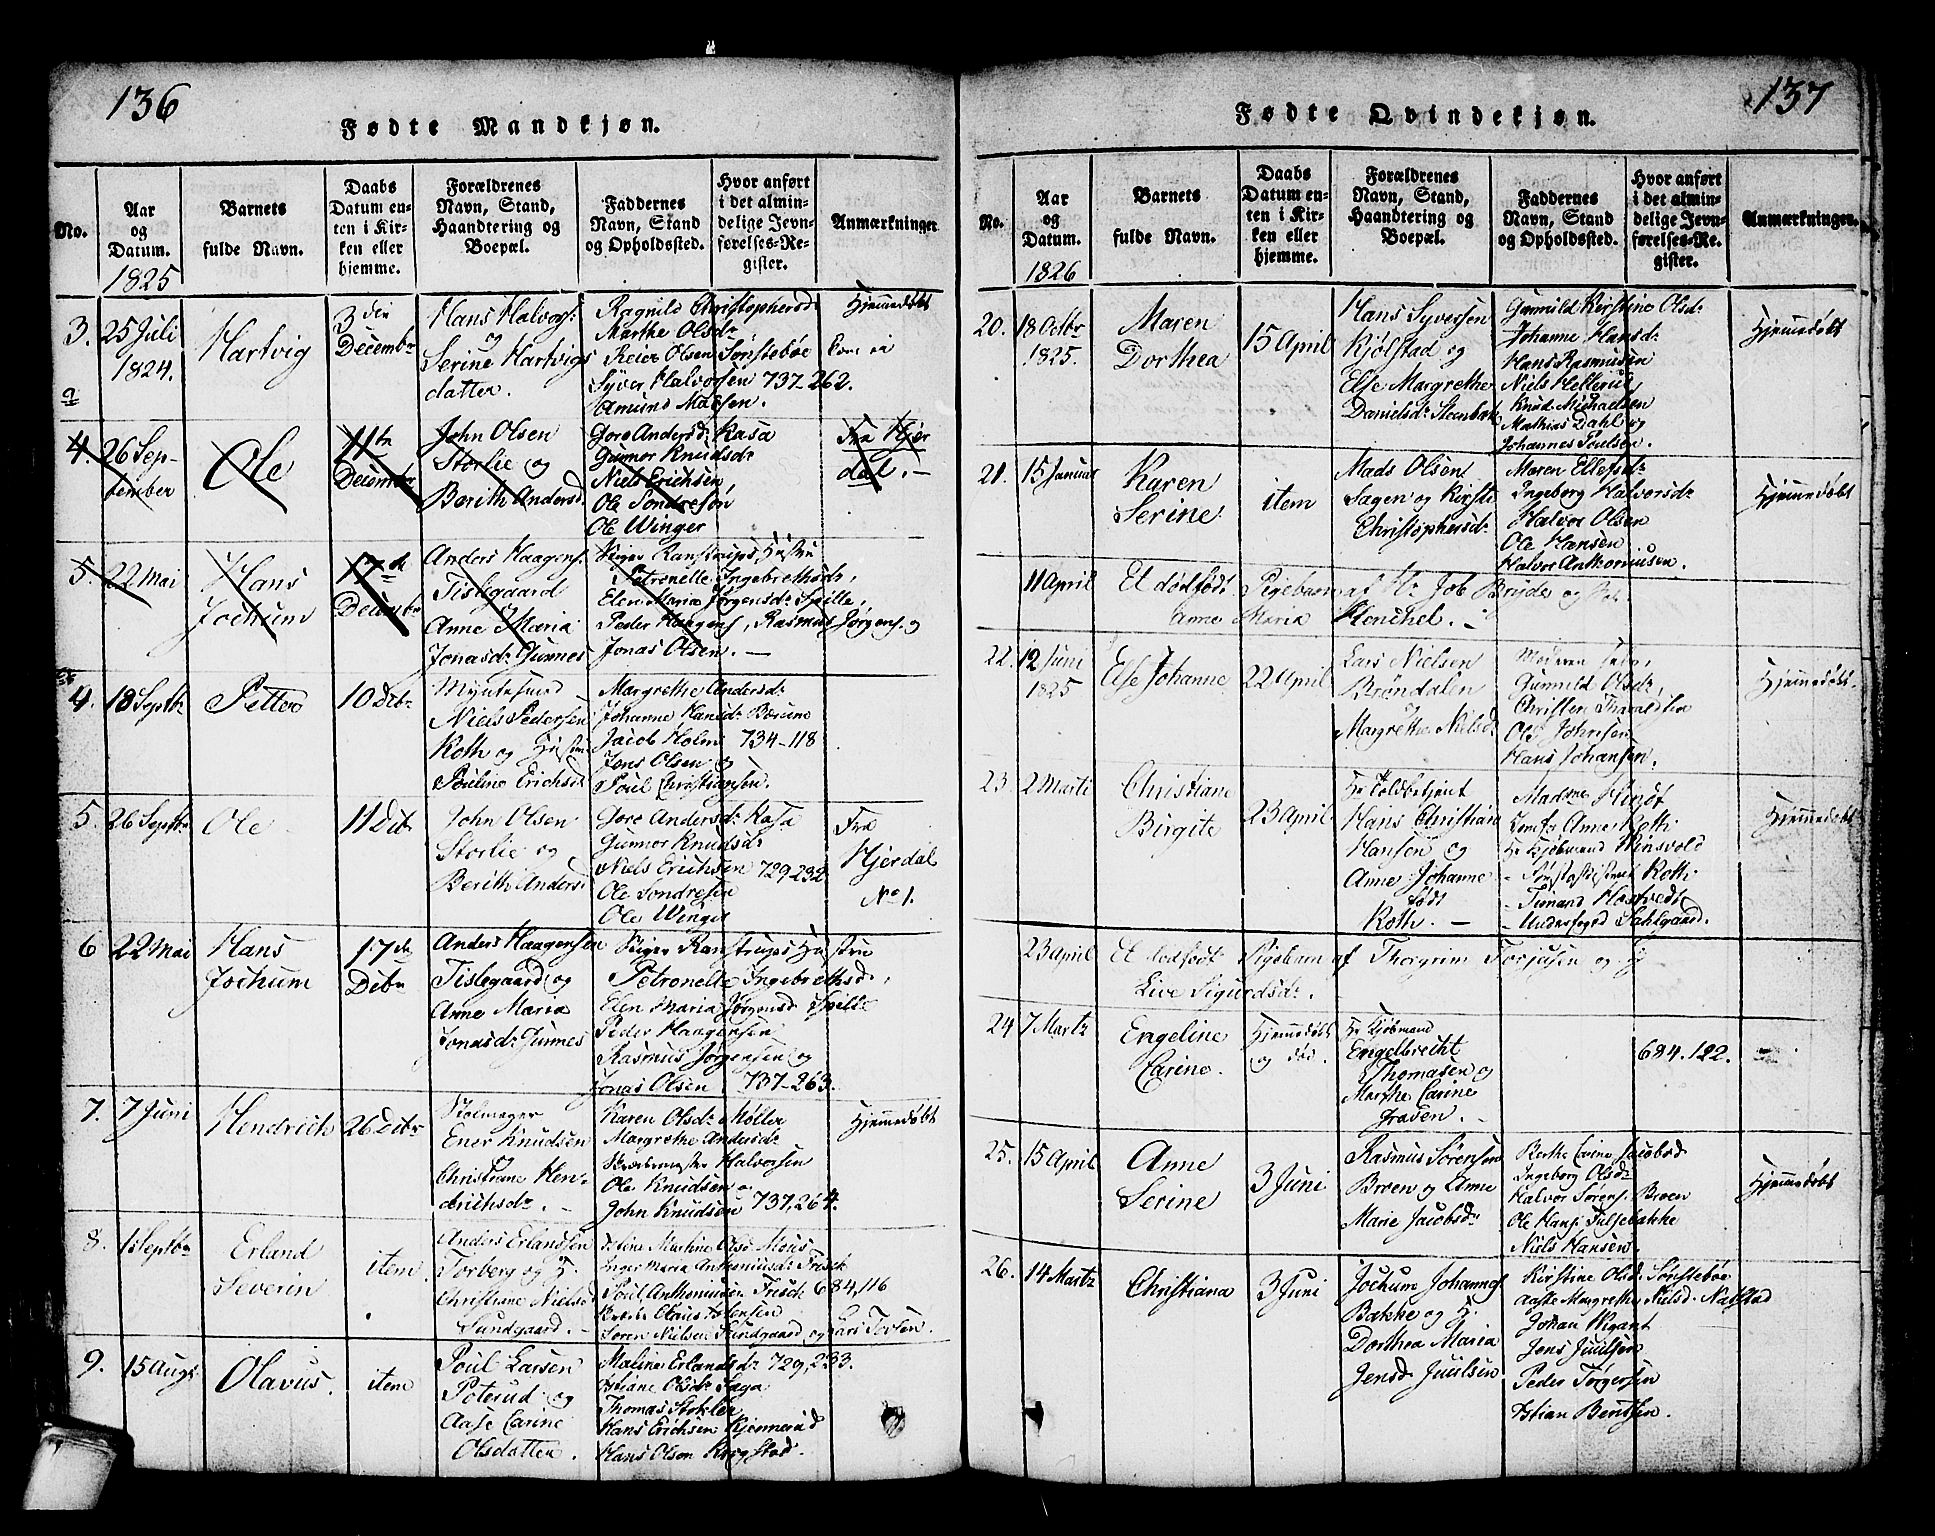 136
Fødte Mandkjøn.
No.
Aar
og
Datum.
1825
Barnets
fulde Navn.
Daabs
Datum en-
ten i Kir-
ken eller
hjemme.
Forældrenes
Navn, Stand,
Haandtering og
Boepæl.
Faddernes
Navn, Stand
og Opholdssted.
Hvor anført
i det almin-
delige Jevn-
førelses-Re-
gister.
Anmærkninger
3.
25 Juli
1824.
Hartvig
3 die
Decembr
Hans Halvors:
og
Serine Hartvigs
datter.
Ragnild Christophersd:
Marthe Olsdr
Reier Olsen Sønsteböe
Syver Halvorsen 737-262.
Amund Madsen.
Hjemmedøbt
4.
26 Sep-
tember
Ole
11te
December
John Olsen
Storlie og
Berith Andersd:
Gore Andersd: Kasa
Gunnor Knudsdr
Niels Erichsen
Ole Sondresøn
Ole Winger
Fra Hjer
dal. -
5.
22 Mai
Hans
Jochum
17de
Decembr
Anders Haagens:
Tislegaard
Anne Maria
Jonasdr Gunnes
Petronelle Ingebrethsdr,
Elen Maria Jørgensdr
Peder Haagens, Rasmus Jørgens. og
Jonas Olsen. -
4.
18 Septbr
Petter
10 Debr
Niels Pedersen
Roth og Hustru
Pauline Erichsd:
Margrethe Andersdr
Johanne Hansdr Bærume
Jacob Holm 734-118
Jens Olsen og
Poul Christiansen.
5.
26 Septbr
Ole
11 Debr
John Olsen
Storlie og
Berith Andersd:
Gore Andersdr Kasa
Gunnor Knudsdr
Niels Erichsen 729-232
Ole Sondresen
Ole Winger
Fra
Hjerdal
No 1.
6
22 Mai
Hans
Jochum
17de
Debr
Anders Haagensen
Tislegaard og
Anne Maria
Jonasdr Gunnes
Petronelle Ingebrethsd,
Elen Maria Jørgensd
Peder Haagensen
Rasmus Jørgensen og
Jonas Olsen. 737-263.
7.
7 Juni
Hendrich
26 Debr
Ener Knudsen
Christiane Hen-
drichsdr. -
Karen Olsdr Møller
Margrethe Andersdr
Halvorsen
Ole Knudsen
John Knudsen 737,264.
Hjemmedøbt
8.
1 Septbr
Erland
Severin
item
Anders Erlandsen
Torberg og H.
Christiane Nielsd
Sundgaard. -
Inger Maria Anthoniusdr Frisch
Poul Anthoniusen Frisch 684,116
Søren Nielsen Sundgaard og Lars Torsen.
9.
15 Augs.
Olavus.
item
Poul Larsen
Poterud og
Aase Carine
Olsdatter.
Maline Erlandsdr 729,233.
Thomas Stokler
Hans Erichsen Kjennerud
Hans Olsen Krogstad.
137
Fødte Qvindekjøn.
No.
Aar
og
Datum.
1826
Barnets
fulde Navn.
Daabs
Datum en-
ten i Kir-
ken eller
hjemme.
Forældrenes
Navn, Stand,
Haandtering og
Boepæl.
Faddernes
Navn, Stand
og Opholdssted.
Hvor anført
i det almin-
delige Jevn-
førelses-Re-
gister.
Anmærkninger.
20.
18 Octbr
1825.
Maren
Dorthea
15 April
Hans Syversen
Kjølstad og
Else Margrethe
Danielsdr
Gunnild Kirstine Olsdr
Johanne Hansdr
Hans Rasmusen
Niels Hellerud
Knud Michaelsen
Mathias Dahl og
Johannes Poulsen.
Hjemmedøbt
21.
15 Januar
Karen
Serine
item
Mads Olsen
Sagen og Kirsti
Christophersdr
Maren Ellefsdr
Ingeborg Halvorsdr
Halvor Olsen
Ole Hansen
Halvor Anthoniusen.
Hjemmedøbt
11 April
Et dødfødt Pigebarn af Hr Job Bryde og
Anne Maria Henchel. -
22.
12 Juni
1825
Else Johanne
22 April
Lars Nielsen
Brøndalen
og
Margrethe Nielsd:
Moderen selv,
Gunnild Olsdr,
Christen Haraldsen
Ole Johnsen
Hans Johansen.
Hjemmedøbt.
23.
2 Marti
Christiane
Birgite
23 April
Hr Toldbetjent
Hans Christian
Hansen og
Anne Johanne
født
Roth. -
Madme Hindt
Jomfr Anne Roth
Hr Kjøbmand
Hjemmedøbt
23 April
Et dødfødt Pigebarn af Thorgrim Torjusen og H
Live Sigurdsdr.
24
7 Martz
Engeline
Carine.
Hjemmedøbt
og død.
Hr Kjøbmand
Engelbrecht
Thomasen og
Marthe Carine
684.122.
25.
15 April
Anne
Serine
3 Juni
Rasmus Sørensen
Broen og Anne
Marie Jacobsdr
Berthe Carine Jacobsd
Ingeborg Olsdr
Halvor Sørens. Broen
Ole Hans: Tufsebakke
Niels Hansen.
Hjemmedøbt
26.
14 Martz
Christiana
3 Juni
Jochum Johannes
Bakke og H.
Dorthea Maria
Jensd Juulsen
Kirstine Olsd: Sønsteböe
Aaste Margrethe Nielsd. Nalstad
Johan Wigant
Jens Juulsen
Peder Jørgensen
Kstian Bentsen.